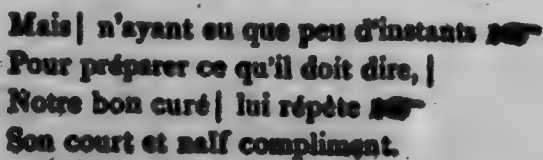 Mais| n'ayant eu que peu d'instants ☛
Pour préparer ce qu'il doit dire, |
Notre bon curé| lui répète ☛
Son court et naïf compliment.